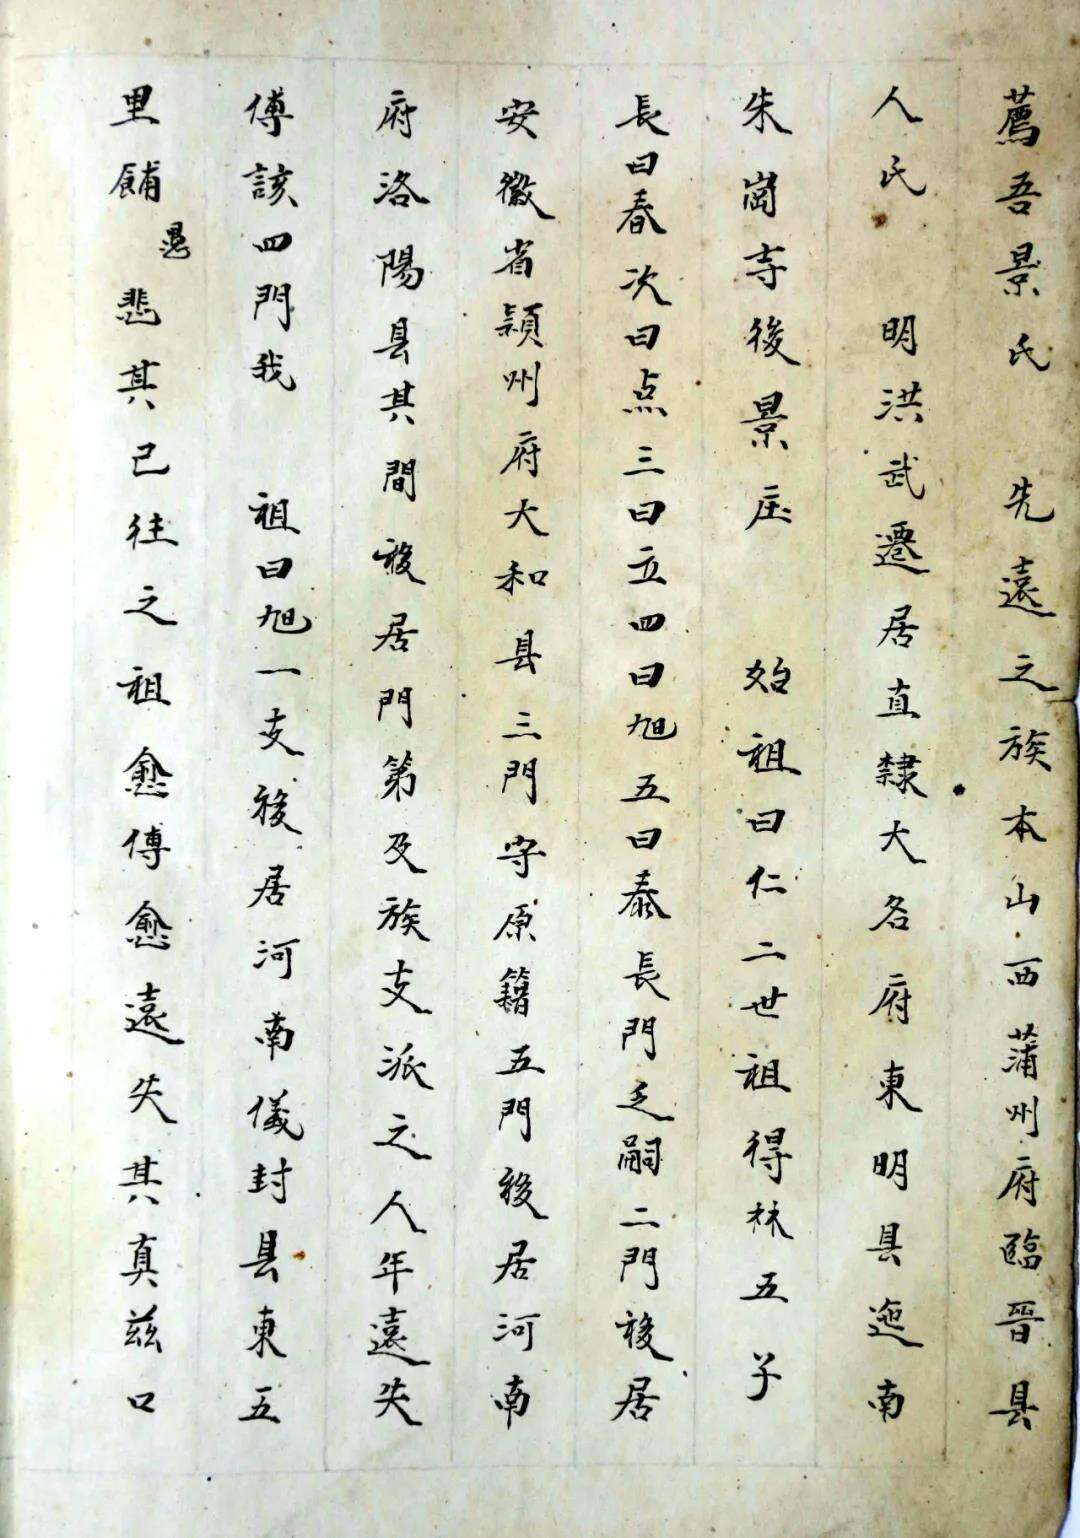 薦吾景氏 先遠之族本山西蒲州府臨晋县
人氏 明洪武遷居直隸大名府東明县迤南
朱崗寺後景庄 始祖曰仁二世祖得林五子
長曰春次曰点三曰立四曰旭五曰泰長門乏嗣二門移居
安徽省潁州府大和县三門守原籍五門移居河南
府洛陽县其間移居門第及族支派之人年遠失
傅該四門我 祖曰旭一支移居河南儀封县東五
里餔 悲其已往之祖愈傅愈遠失其真兹口